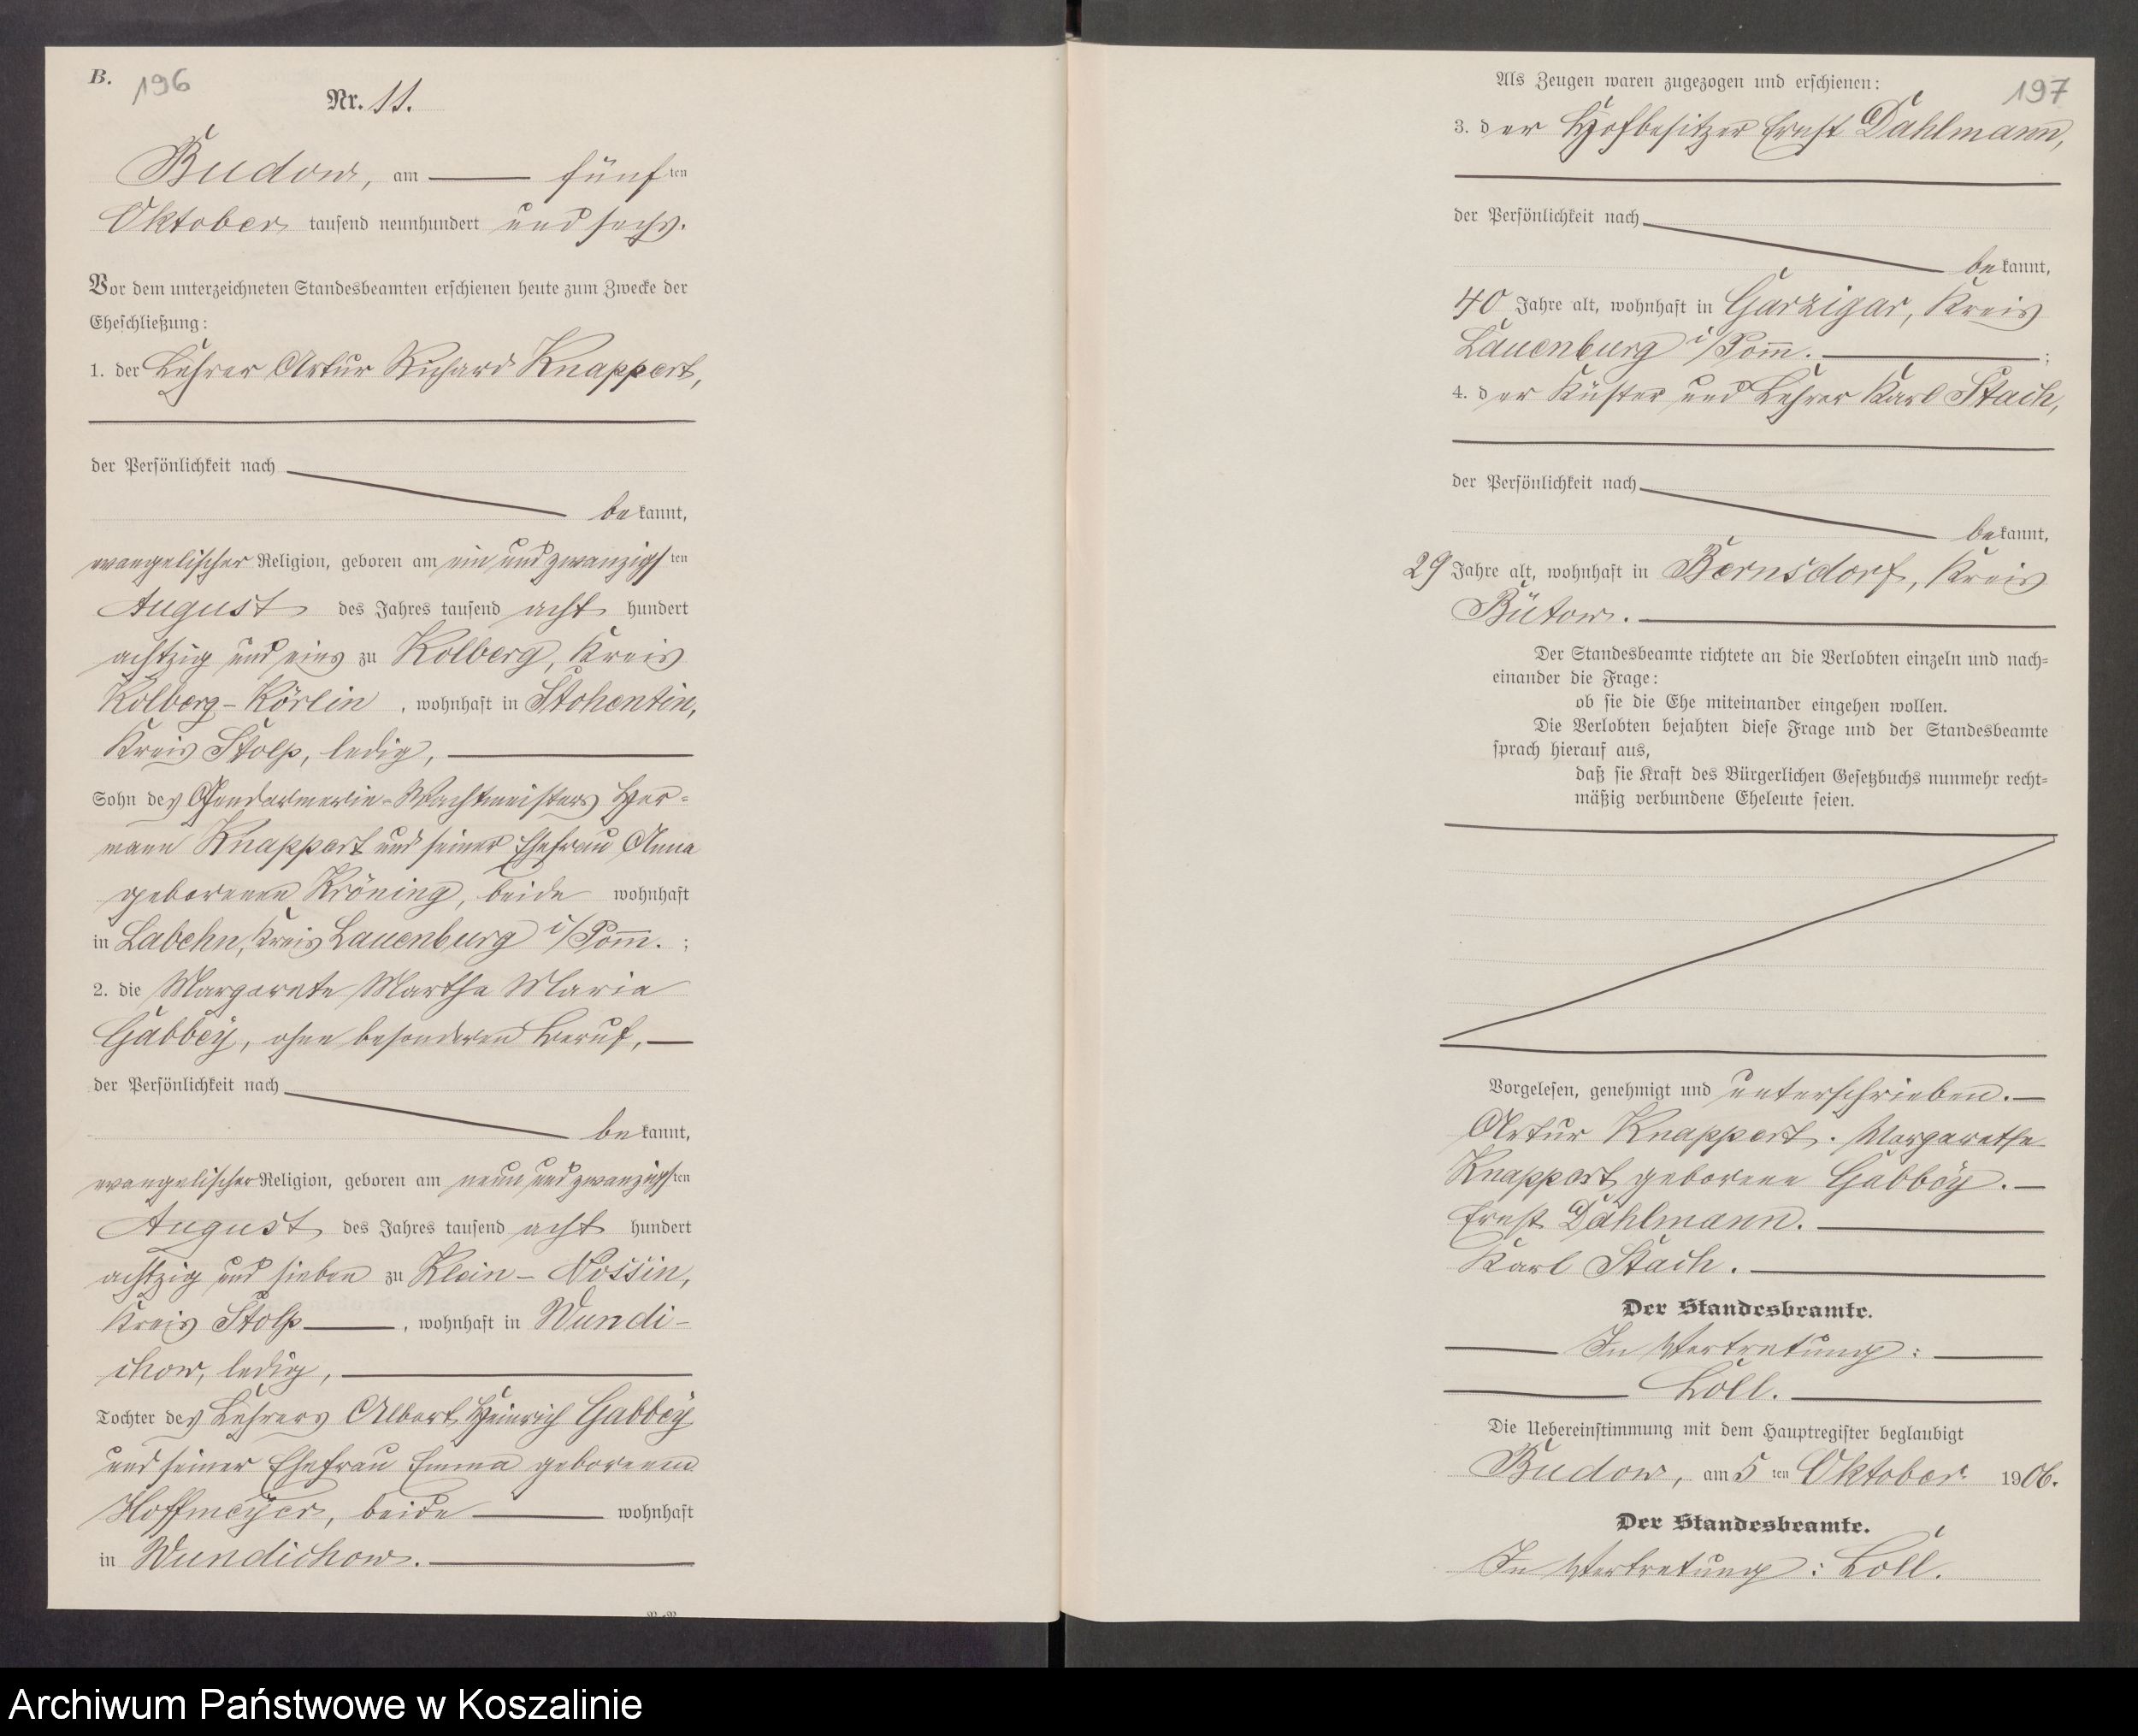 B. 196
Nr. 11.
Budow, am fünf ten
Oktober tausend neunhundert und sechs.
Vor dem unterzeichneten Standesbeamten erschienen heute zum Zwecke der
Eheschließung:
1. der Lehrer Artur Richard Knappert,
der Persönlichkeit nach
be kannt,
evangelischer Religion, geboren am ein und zwanzigs ten
August des Jahres tausend acht hundert
achtzig und eins zu Kolberg, Kreis
Kolberg-Körlin, wohnhaft in Stohentin,
Kreis Stolp, ledig,
Sohn des Gendarmerie-Wachtmeisters Her=
mann Knappert und seiner Ehefrau Anna
geborenen Kröning, beide wohnhaft
in Labehn, Kreis Lauenburg i/Pom̅. ;
2. die Margarete Marthe Marie
Gabbey, ohne besonderen Beruf,
der Persönlichkeit nach
be kannt,
evangelischer Religion, geboren am neun und zwanzigs ten
August des Jahres tausend acht hundert
achtzig und sieben zu Klein-Nossin,
Kreis Stolp, wohnhaft in Wundi-
chow, ledig,
Tochter des Lehrers Albert Heinrich Gabbey
und seiner Ehefrau Emma geborenen
Hoffmeyer, beide wohnhaft
in Wundichow.
197
Als Zeugen waren zugezogen und erschienen:
3. der Hofbesitzer Ernst Dahlmann,
der Persönlichkeit nach
be kannt,
40 Jahre alt, wohnhaft in Garzigar, Kreis
Lauenburg i/Pom̅. ;
4. der Küster und Lehrer Karl Stach,
der Persönlichkeit nach
be kannt,
29 Jahre alt, wohnhaft in Bernsdorf, Kreis
Bütow.
Der Standesbeamte richtete an die Verlobten einzeln und nach=
einander die Frage:
ob sie die Ehe miteinander eingehen wollen.
Die Verlobten bejahten diese Frage und der Standesbeamte
sprach hierauf aus,
daß sie Kraft des Bürgerlichen Gesetzbuchs nunmehr recht=
mäßig verbundene Eheleute seien.
Vorgelesen, genehmigt und unterschrieben.
Artur Knappert. Margarethe
Knappert geborene Gabbey.
Ernst Dahlmann.
Karl Stach.
Der Standesbeamte.
In Vertretung:
Loll.
Die Uebereinstimmung mit dem Hauptregister beglaubigt
Budow, am 5 ten Oktober 1906.
Der Standesbeamte.
In Vertretung: Loll.
Archiwum Państwowe w Koszalinie